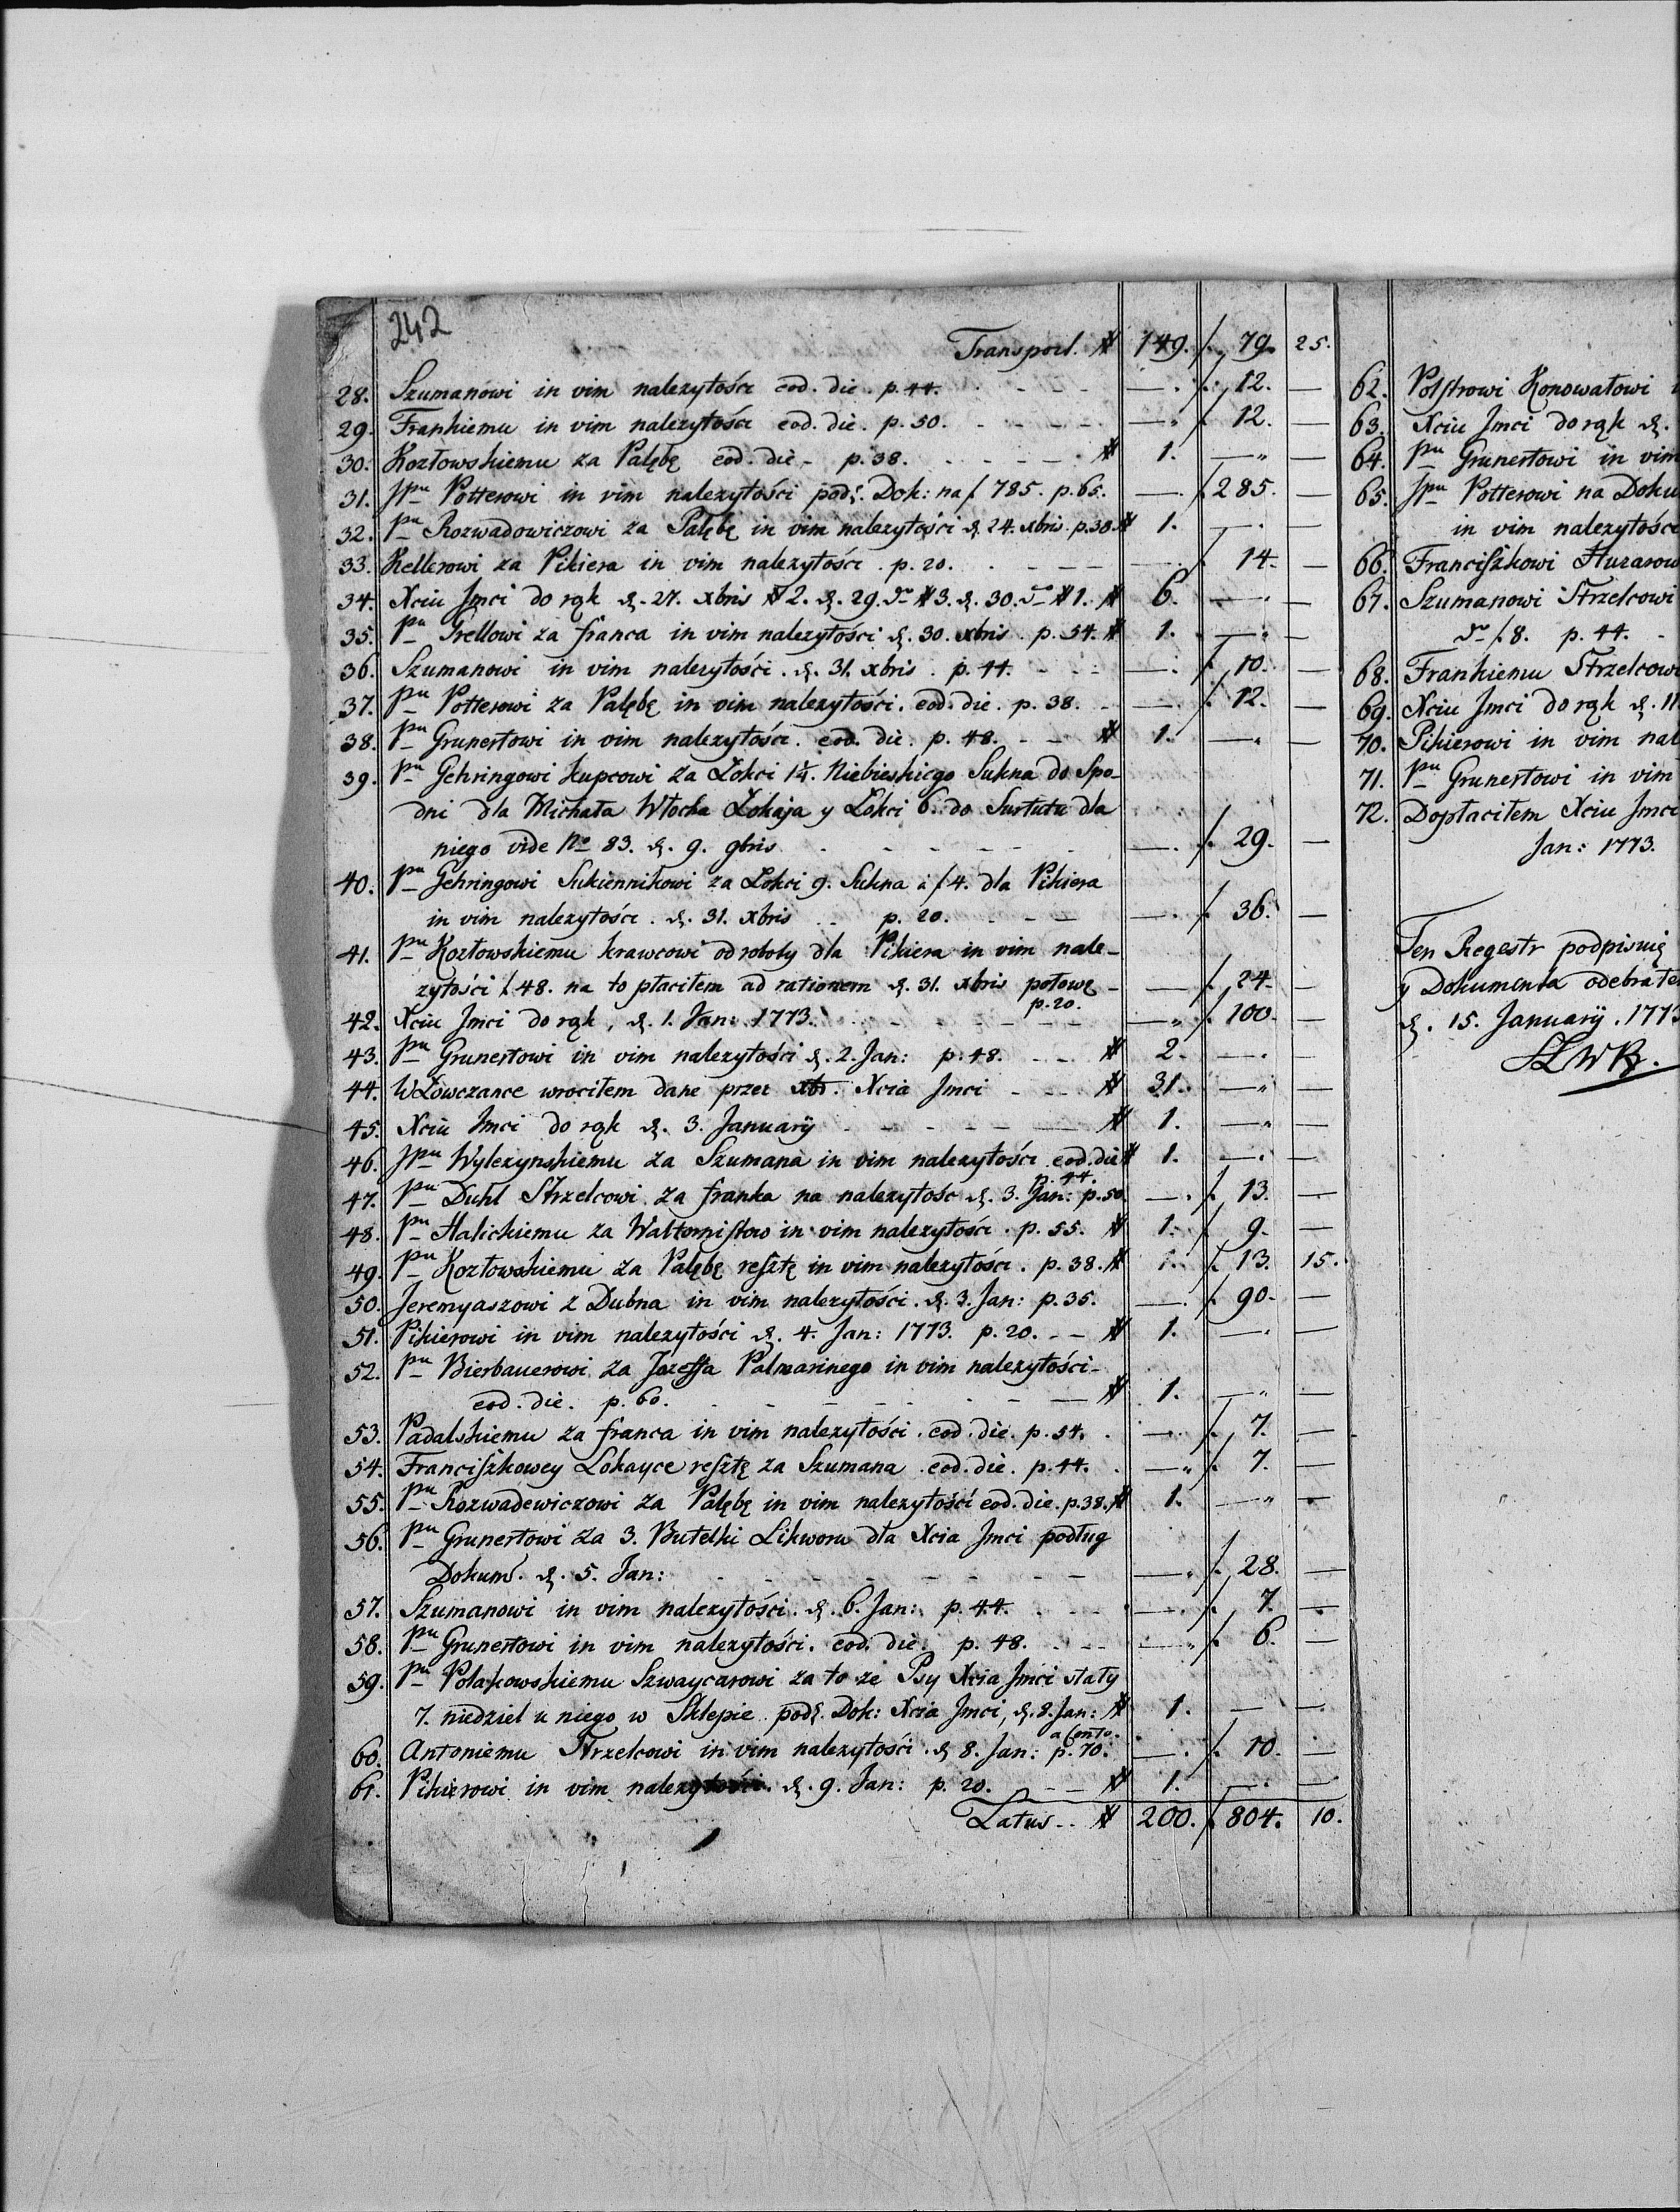 242
Transport. # 149. f. 79. 25.
28. Szumanowi in vim należytości eod. die. p. 44. - - - —. f. 12. —
29. Frankiemu in vim należytości eod. die. p. 50. - - - - —. f. 12. —
30. Kozłowskiemu za Palębę eod. die - p. 38. - - - - # 1. —" —
31. JPu Potterowi in vim należytości podł. Dok: na f 785. p. 65. —. f 285. —
32. Pu Rozwadowiczowi za Palębę in vim należytości d. 24. xbris. p. 38. # 1. —. —
33. Kellerowi za Pikiera in vim należytości. p. 20. - - - - —. f. 14. —
34. Xciu Jmci do rąk d. 27. xbris # 2. d. 29. do # 3. d. 30. do # 1. # 6. —" —
35. Pu Grellowi za franca in vim należytości d. 30. xbris. p. 54. # 1. —" —
36. Szumanowi in vim należytości. d. 31. xbris. p. 44. - - - —. f. 10. —
37. Pu Potterowi za Palębę in vim należytości. eod. die. p. 38. - —. f. 12. —
38. Pu Grunertowi in vim należytości. eod. die. p. 48. - - # 1. —" —
39. Pu Gehringowi kupcowi za Łokci 1¼. Niebieskiego Sukna do Spo-
dni dla Michała Włocha Lokaja y Łokci 6. do Surtutu dla
niego vide No 83. d. 9. 9bris. - - - - - —. f. 29. —
40. Pu Gehringowi Sukiennikowi za Łokci 9. Sukna à f 4. dla Pikiera
in vim należytości. d. 31. xbris - p. 20. - - - —. f. 36. —
41. Pu Kozłowskiemu krawcowi od roboty dla Pikiera in vim nale-
żytości f. 48. na to płaciłem ad rationem d. 31. xbris połowę - — f. 24. —
p. 20.
42. Xciu Jmci do rąk, d. 1. Jan: 1773. - - - - - —" f. 100. —
43. Pu Grunertowi in vim należytości d. 2. Jan: p. 48. - - # 2. —. —
44. WŁowczance wrociłem dane przez xbr. Xcia Jmci - - - # 31. —" —
45. Xciu Jmci do rąk d. 3. Januarÿ - - - - - — # 1. —" —
46. JPu Wyleżynskiemu za Szumana in vim należytości eod. die # 1. —. —
p. 44.
47. Pu Duhl Strzelcowi za franka na należytość d. 3. Jan: p. 50. —. f. 13. —
48. Pu Halickiemu za Waltornistow in vim należytości. p. 55. # 1. f. 9. —
49. Pu Kozłowskiemu za Palębę resztę in vim należytości. p. 38. # 1. f. 13. 15.
50. Jeremyaszowi z Dubna in vim należytości. d. 3. Jan: p. 35. —. f. 90. —
51. Pikierowi in vim należytości d. 4. Jan: 1773. p. 20. - - # 1. —. —
52. Pu Bierbauerowi za Jozeffa Palmarinego in vim należytości -
eod. die. p. 60. - - - - - - — # 1. —" —
53. Padalskiemu za franca in vim należytości. eod. die. p. 54. —. f. 7. —
54. Franciszkowey Lokayce resztę za Szumana. eod. die. p. 44. —" f. 7. —
55. Pu Rozwadewiczowi za Palębę in vim należytości eod. die. p. 38. # 1. —" —
56. Pu Grunertowi za 3. Butelki Likworu dla Xcia Jmci podług
Dokum. d. 5. Jan: - - - - - - —" f. 28. —
57. Szumanowi in vim należytości. d. 6. Jan: p. 44. - - - —. f. 7. —
58. Pu Grunertowi in vim należytości. eod. die. p. 48. - - - —" f. 6. —
59. Pu Polakowskiemu Szwaycarowi za to że Psy Xcia Jmci stały
7. niedziel u niego w Sklepie podł. Dok: Xcia Jmci, d. 8. Jan: # 1. — —
a Conto.
60. Antoniemu Strzelcowi in vim należytości. d. 8. Jan: p. 70. —. f. 10. —
61. Pikierowi in vim należytości. d. 9. Jan: p. 20. - - # 1. —. —
Latus - - # 200. f. 804. 10.
62. Polstrowi Konowałowi
63. Xciu Jmci do rąk d.
64. Pu Grunertowi in vim
65. JPu Potterowi na Doku
in vim należytości
66. Franciszkowi Huzarow
67. Szumanowi Strzelcowi
do f. 8. p. 44. -
68. Frankiemu Strzelcowi
69. Xciu Jmci do rąk d. 11
70. Pikierowi in vim nal
71. Pu Grunertowi in vim
72. Dopłaciłem Xciu Jmci
Jan: 1773.
Ten Regestr podpisuię
y Dokumenta odebrałe
d. 15. Januarÿ. 1773